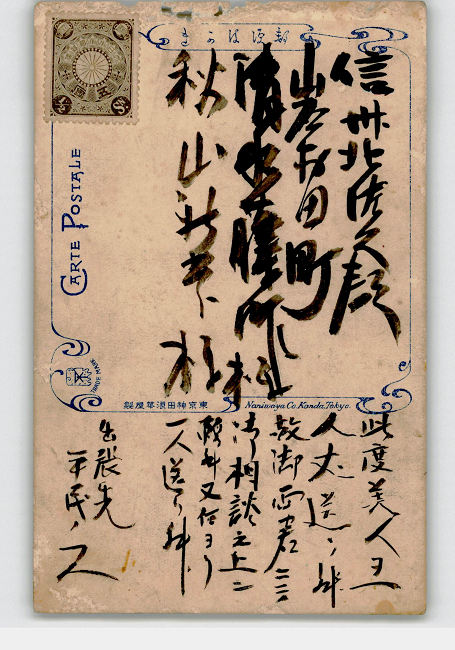 郵便はかき
信州北佐久郡
岩村田町
清水藤
様
秋山
様
CARTE POSTALE
TRADE MARK
東京神田浪華屋製
Naniwaya Co. Kanda, Tokyo.
此度美人ヲ一
人丈送リ升
故御両君ニテ
御相談之上ニ
願升又何ヨリ
一人送リ升
出張先
平民ノ